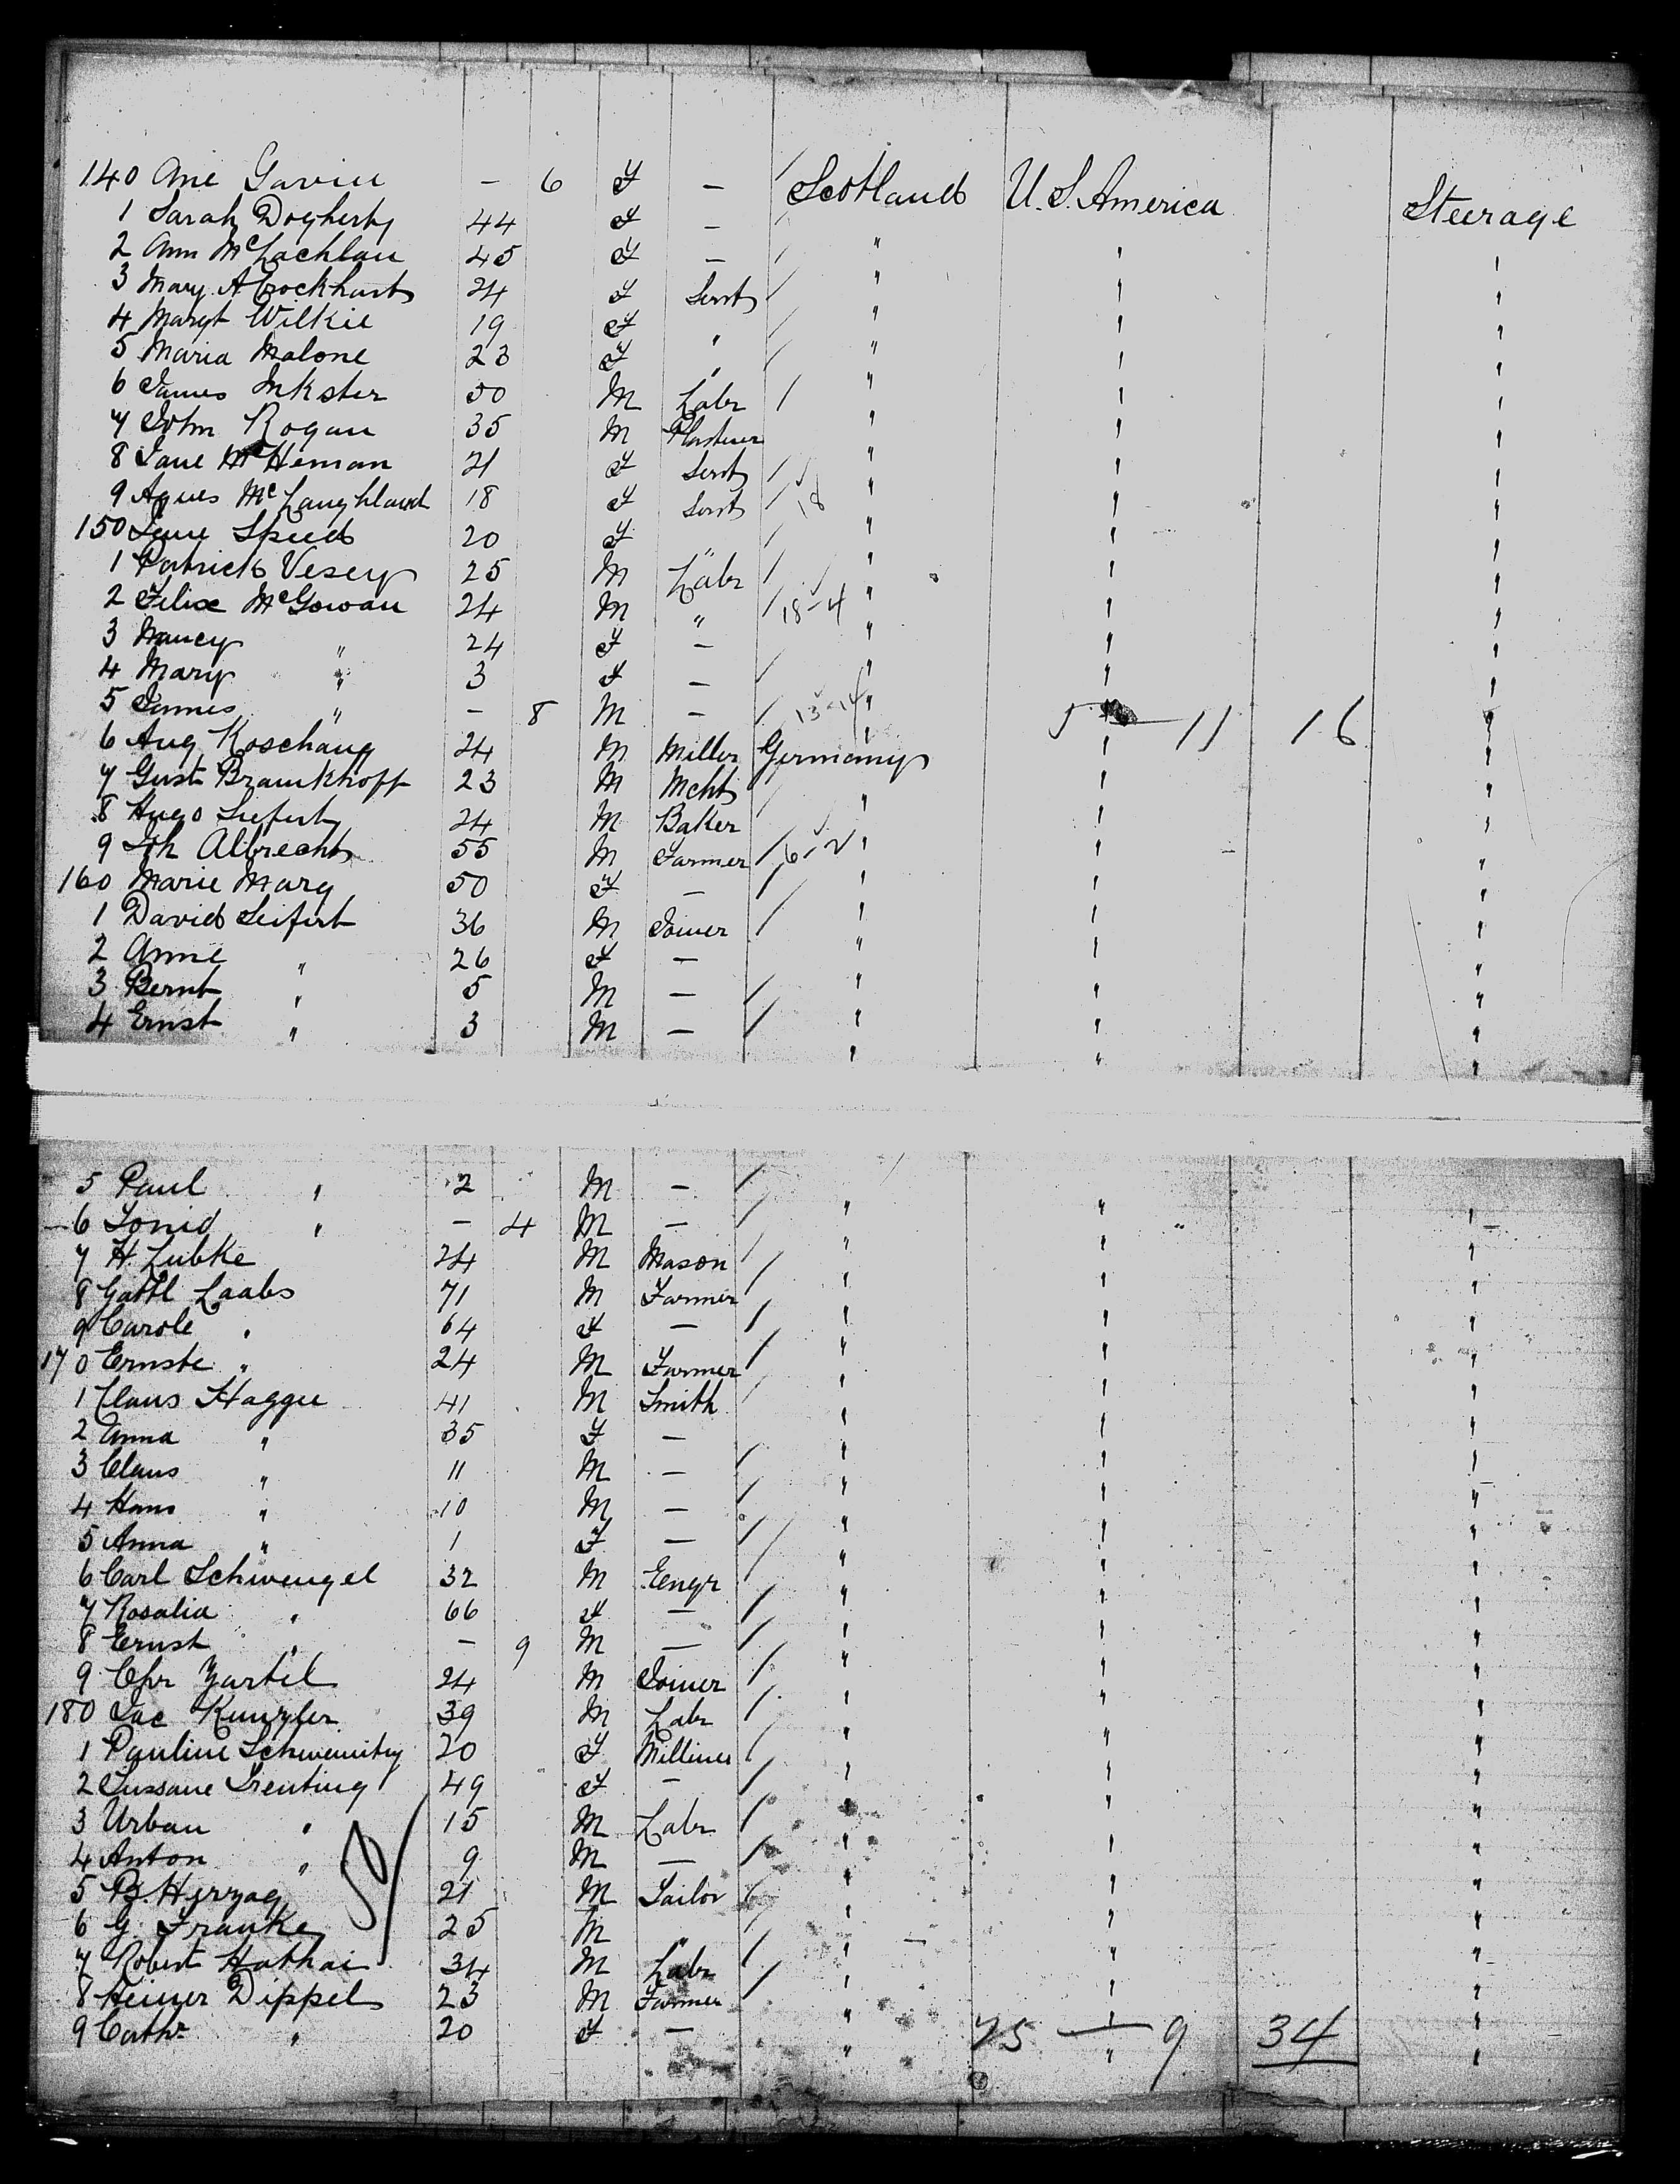 140 Ane Gavin — 6 F — / Scotland U.S. America Steerage
1 Sarah Dogherty 44 F — / " " "
2 Ann McLachlan 45 F — / " " "
3 Mary A Crockhart 24 F Servt / " " "
4 Margt Wilkie 19 F " / " " "
5 Maria Malone 23 F " / " " "
6 James Inkster 50 M Labr / " " "
7 John Rogan 35 M Plasterer " " "
8 Jane McHeman 21 F Servt / " " "
9 Agnes McLaughland 18 F Servt / 18 " " "
150 Jane Speed 20 F " / " " "
1 Patrick Vesey 25 M Labr / " " "
2 Felix McGowan 24 M " / 18-4 " " "
3 Nancy " 24 F — " " "
4 Mary " 3 F — / " " "
5 James " — 8 M — / 13-14 " 5 — 11 16 "
6 Aug Koschang 24 M Miller Germany " "
7 Gust Bramkhoff 23 M Mcht / " " "
8 Hugo Siefert 24 M Baker " "
9 Joh Albrecht 55 M Farmer / 6-2 " " "
160 Marie Mary 50 F — / " " "
1 David Seifert 36 M Joiner / " " "
2 Anne " 26 F — " " "
3 Bernt " 5 M — / " " "
4 Ernst " 3 M — / " " "
5 Paul " 2 M — / " " "
6 — 4 M — / " " "
7 H. Lubke 24 M Mason / " " "
8 Gottl Laabs 71 M Farmer / " " "
9 Carole " 64 F — / " " "
170 Ernste " 24 M Farmer / " " "
1 Claus Haggee 41 M Smith / " " "
2 Anna " 35 F — " " "
3 Claus " 11 M — / " " "
4 Hans " 10 M — / " " "
5 Anna " 1 F — / " " "
6 Carl Schwengel 32 M Engr / " " "
7 Rosalia " 66 F — / " " "
8 Ernst " — 9 M — / " " "
9 Chr Zartel 24 M Joiner / " " "
180 Jac Kunzler 39 M Labr / " " "
1 Pauline 20 F Milliner / " " "
2 Sussane Trenting 49 F — / " " "
3 Urban " 15 M Labr / " " "
4 Anton " 9 M — / " " "
5 B. Herzag 21 M Tailor / " " "
6 G. Franke 25 M " / " " "
7 Robert Hathai 34 M Labr / " " "
8 Heinr Dippel 23 M Farmer / " " "
9 Cathr " 20 F — " 25 — 9 34 "